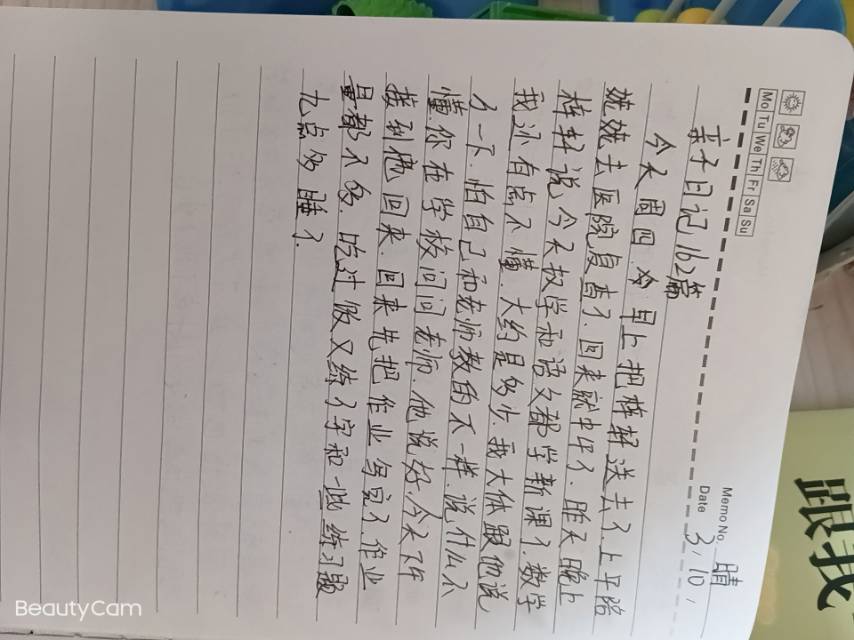 Memo No. 晴
Mo Tu We Th Fr Sa Su
Date 3,10,
亲子日记162篇
今天周四.今早上把梓轩送去了.上午陪
姥姥去医院复查了.回来就中午了.昨天晚上
梓轩说今天数学和语文都学新课了.数学
我还有点不懂.大约是多少.我大体跟他说
了一下.怕自己和老师教的不一样.说什么不
懂你在学校问问老师.他说好.今天下午
接到他回来.回来先把作业写完了.作业
量都不多.吃过饭又练了字和一些练习题
九点多睡了.
跟我
BeautyCam